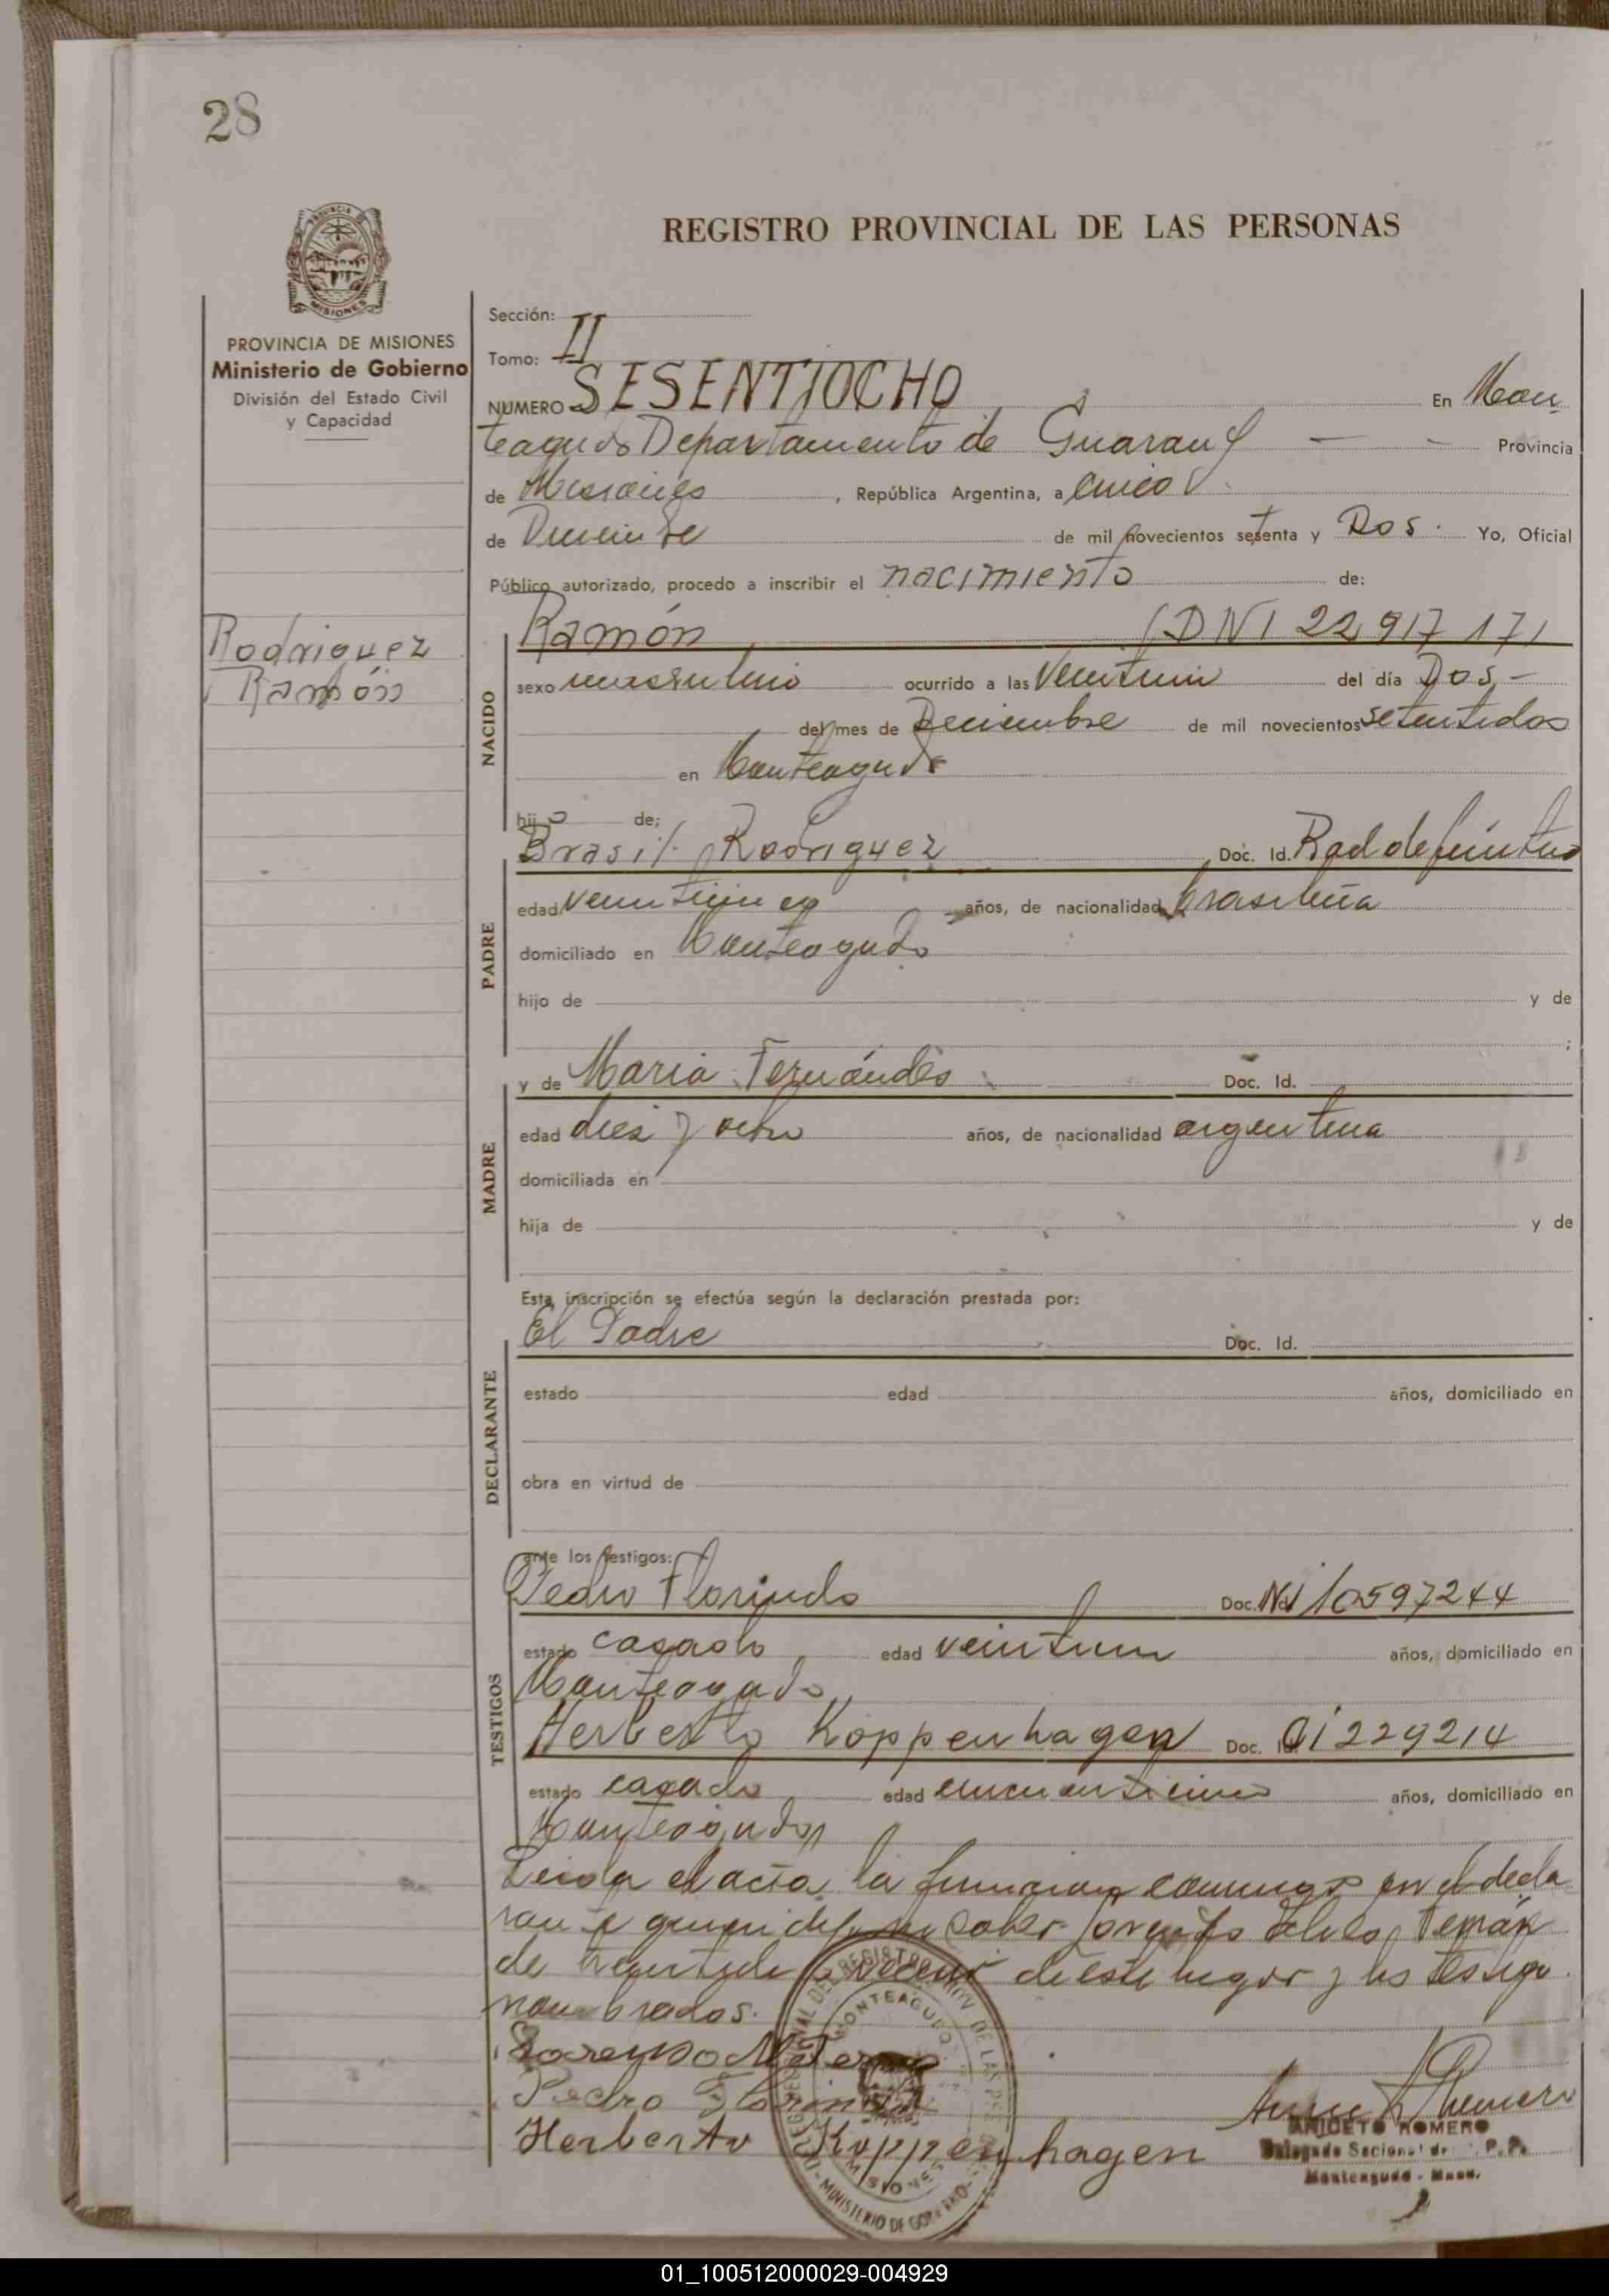 28
REGISTRO PROVINCIAL DE LAS PERSONAS
PROVINCIA DE MISIONES
Ministerio de Gobierno
División del Estado Civil
y Capacidad
Rodriguez
Ramón
Sección:
Tomo: II
NUMERO SESENTIOCHO En Mon
teagudo Departamento de Guaraní — - Provincia
de Misiones , República Argentina, a cinco
de Diciembre de mil novecientos setenta y Dos. Yo, Oficial
Público autorizado, procedo a inscribir el nacimiento de:
Ramón (DNI 22 917 171
NACIDO
sexo masculino ocurrido a las Veintiun del día Dos, -
del mes de Deciembre de mil novecientos setentidos
en Monteagudo
hijo de:
Brasil Rodriguez Doc. Id.
PADRE
edad veinticinco años, de nacionalidad brasileña
domiciliado en Monteagudo
hijo de y de
;
y de Maria Fernándes Doc. Id.
MADRE
edad diez y ocho años, de nacionalidad argentina
domiciliada en
hija de y de
Esta inscripción se efectúa según la declaración prestada por:
El Padre Doc. Id.
DECLARANTE
estado edad años, domiciliado en
obra en virtud de
ante los testigos:
Pedro Florindo Doc. NI 10597244
TESTIGOS
estado casado edad veintiun años, domiciliado en
Monteagudo
Herberto Koppenhagen Doc. Id. CI 229214
estado casado edad cincuenticinco años, domiciliado en
Monteagudo
Leida el acta la firmaran conmigo por el decla
rante quien dijo no saber
de vecino de este lugar y los testigo
nombrados.
Lorenso
Pedro Florindo
Herberto Koppenhagen
MONTEAGUDO
MISIONES
MINISTERIO DE GOBIERNO
ANICETO ROMERO
Delegado Seccional de P.P.
Monteagudo - Mnes.
01_100512000029-004929